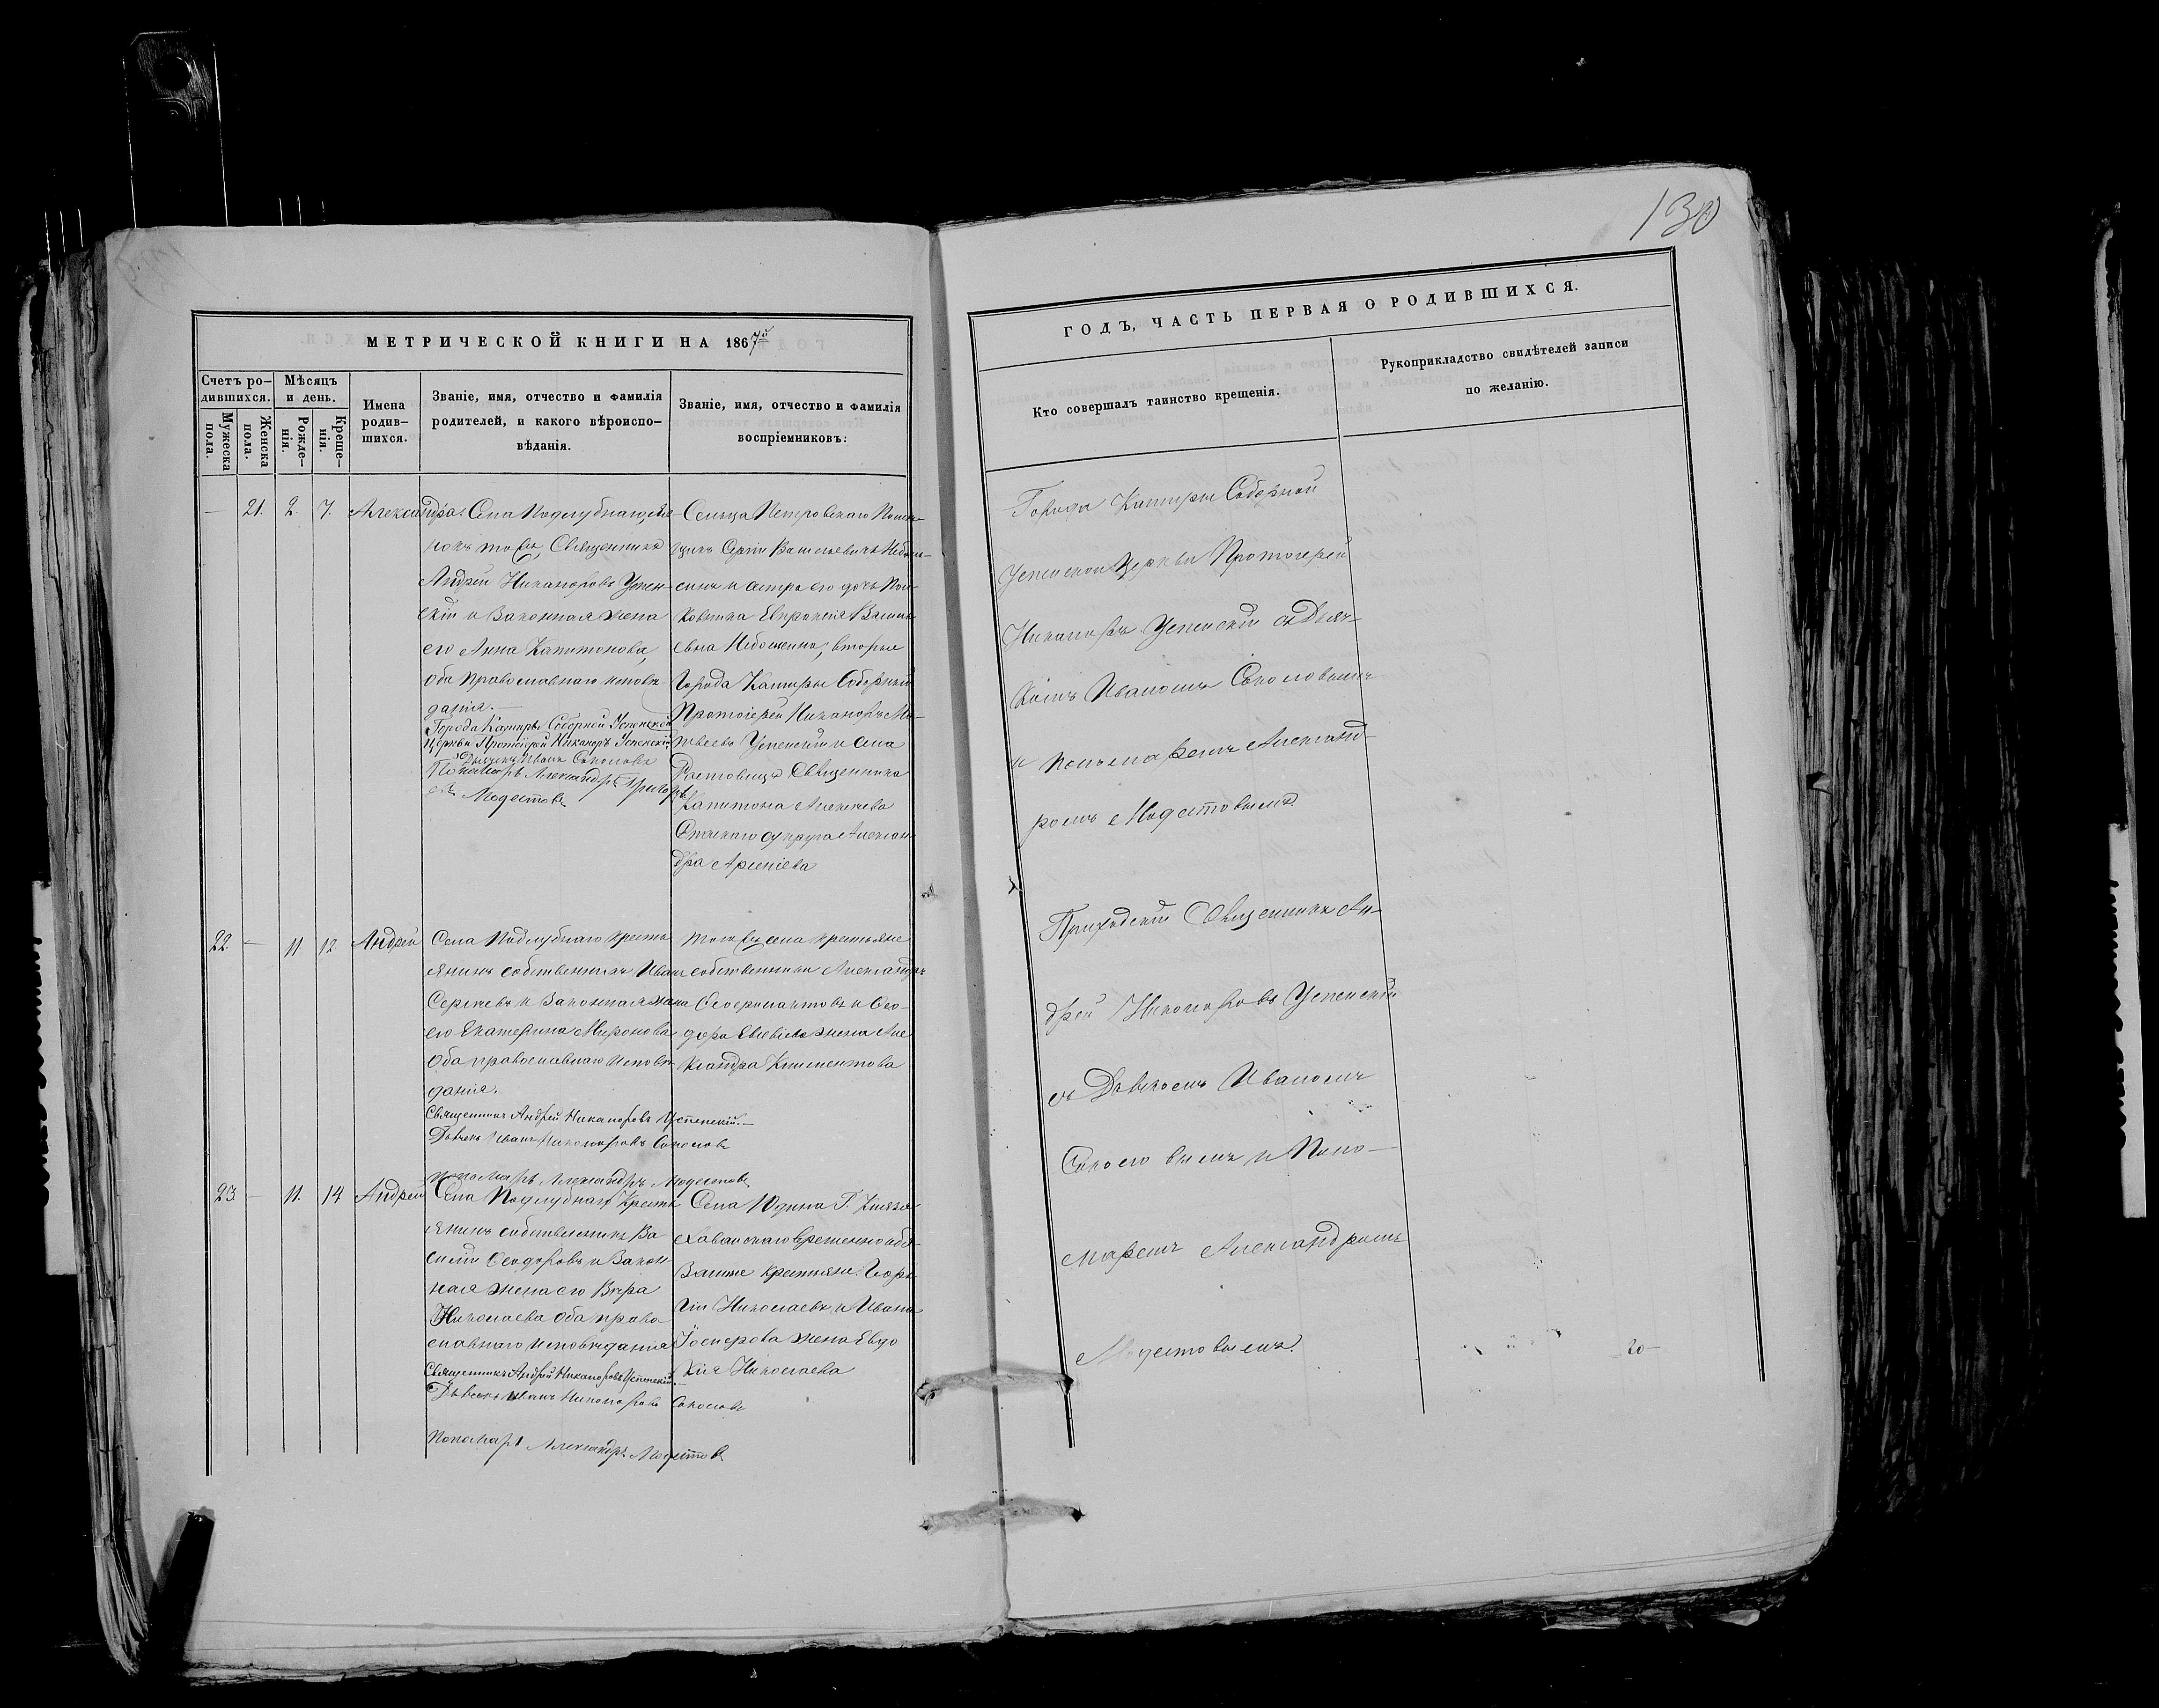 130
МЕТРИЧЕСКОЙ КНИГИ НА 1867й
Счетъ ро-
дившихся.
Мужеска
пола.
Женска
пола.
Мѣсяцъ
и день.
Рожде-
нія.
Креще-
нія.
Имена
родив-
шихся.
Званіе, имя, отчество и фамилія
родителей, и какого вѣроиспо-
вѣданія.
Званіе, имя, отчество и фамилія
воспріемниковъ:
— 21. 2. 7. Александра.
Села Подлубнаго,
Священника
Андрей Никаноровъ Успен-
скій и Законная жена
его Анна Капитонова,
оба православнаго исповѣ-
данія.—
Города Каширы Соборной Успенской
Церкви Протоіерей Никаноръ Успенскій
Дьячекъ Иванъ Соколовъ
Пономарь Александръ Григорь
евъ Модестовъ
Сельца Петровскаго Помѣ-
щикъ Сергій Васильевичъ
и сестра его дочь Пол-
ковника Евпраксія Василь
евна вторые
Города Каширы Соборный
Протоіерей Никаноръ Ма-
твеевъ Успенскій и села
Ростовцы Священника
Капитона Алексѣева
супруга Алексан
дра Арсеніева
22. — 11 12 Андрей
Села Подлубнаго кресть
янинъ собственникъ Иванъ
Сергѣевъ и Законная жена
его Екатерина Миронова
оба православнаго исповѣ
данія.
Священникъ Андрей Никаноровъ Успенскій.—
Дьячекъ Иванъ Никаноровъ Соколовъ
Пономарь Александръ Модестовъ
того же села крестьяне
собственники Александръ
и Ѳео-
дора жена Але
ксандра Климентова
23 — 11. 14 Андрей
Села Подлубнаго Кресть
янинъ собственникъ Ва
силій Ѳеодоровъ и Закон
ная жена его Вѣра
Николаева оба право
славнаго исповѣданія
Священникъ Андрей Никаноровъ Успенскій.
Дьячекъ Иванъ Никаноровъ Соколовъ
Пономарь Александръ Модестовъ
Села Юдина Г. Князя
Хованскаго временно обя
занные крестьяне. Геор
гій Николаевъ и Ивана
Іосифова жена Евдо
кія Николаева
ГОДЪ, ЧАСТЬ ПЕРВАЯ О РОДИВШИХСЯ.
Кто совершалъ таинство крещенія.
Рукоприкладство свидѣтелей записи
по желанію.
Города Каширы Соборной
Успенской Церкви Протоіерей
Никаноръ Успенскій съ Дьяч-
комъ Иваномъ Соколовымъ
и Пономаремъ Александ-
ромъ Модестовымъ.
Приходскій Священникъ Ан-
дрей Никаноровъ Успенскій
съ Дьячкомъ Иваномъ
Соколовымъ и Поно-
маремъ Александромъ
Модестовымъ.